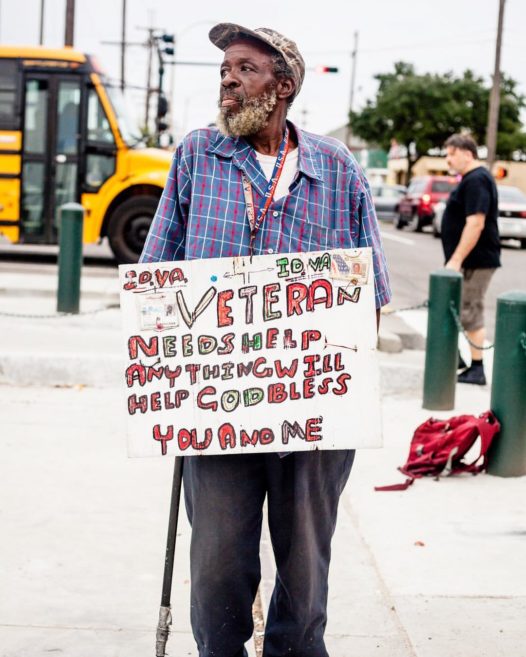 I.D.V.A. I.D.VA
VETERAN
NEEDS HELP
ANYTHING WILL
HELP GOD BLESS
YOU AND ME